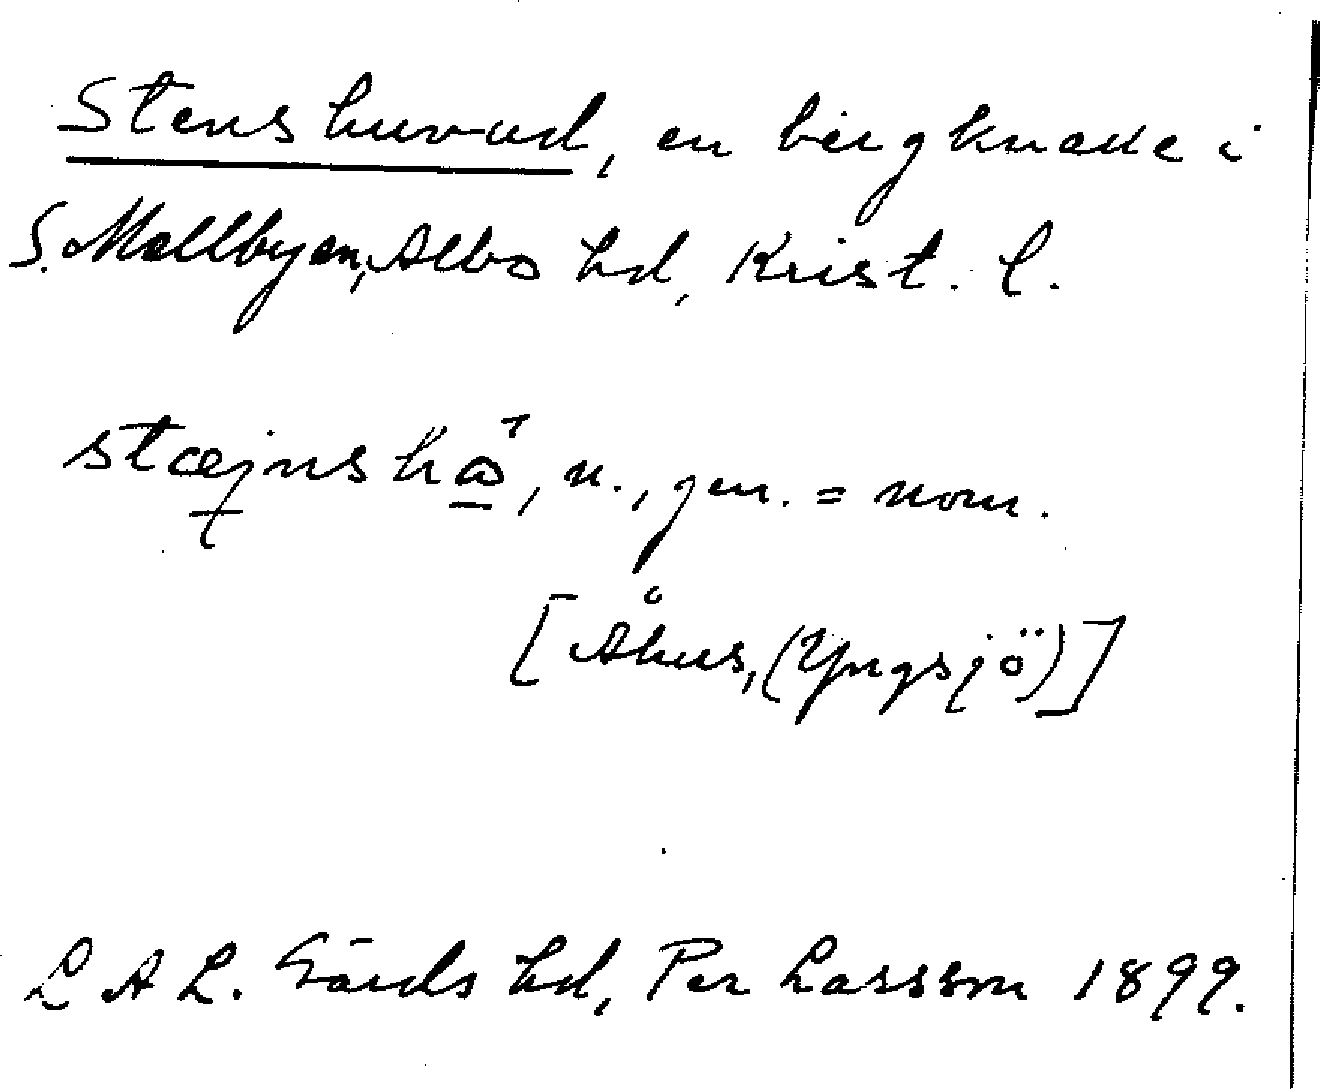 Stenshuvud, en bergknalle i
S. Mellbyen, Albo hd, Krist. l.
stæjnsha, n., gen. = nom.
[Åhus, (Yngsjö)]
L A L. Gärds hd, Per Larsson 1899.